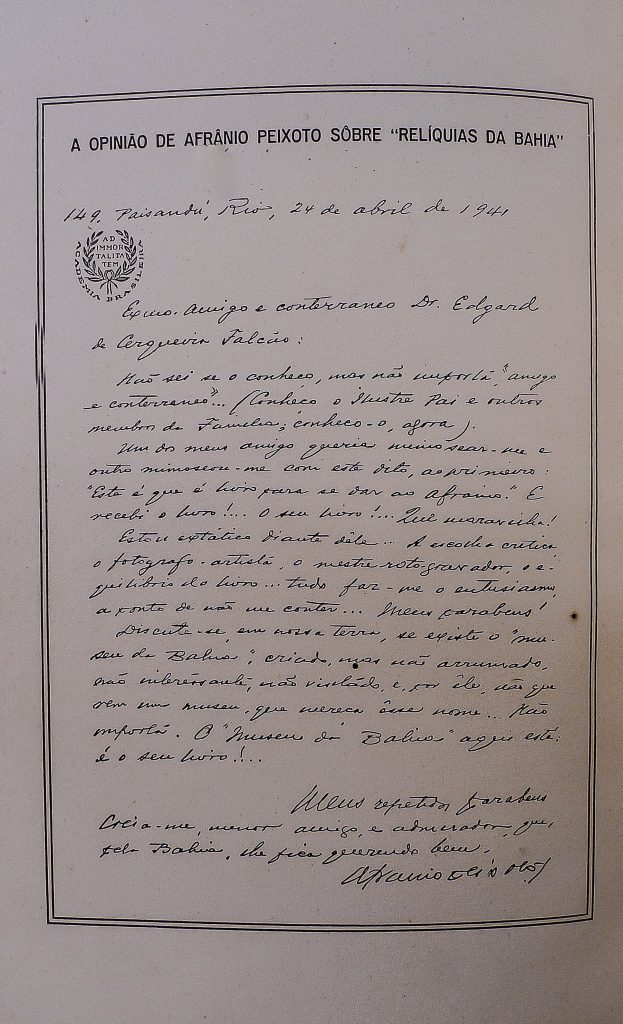 A OPINIÃO DE AFRÂNIO PEIXOTO SÔBRE "RELÍQUIAS DA BAHIA"
149, Paisandú, Rio, 24 de abril de 1941
AD
IMMOR
TALITA
TEM
ACADEMIA BRASILEIRA
Exmo. amigo e conterraneo Dr. Edgard
de Cerqueira Falcão:
Não sei se o conheço, mas não importa, "amigo
e conterraneo"... (Conheço o Ilustre Pai e outros
membros da Familia; conheço-o, agora).
Um dos meus amigo queria mimosear-me e
outro mimoseou-me com este dito, ao primeiro:
"Este é que é livro para se dar ao Afranio." E
recebi o livro!... O seu livro!... Que maravilha!
Estou extático diante dêle... A escolha critica,
o fotografo-artista, o mestre-rotogravador, o e-
quilibrio do livro... tudo faz-me o entusiasmo,
a ponto de não me conter... Meus parabens!
Discute-se, em nossa terra, se existe o "mu-
seu da Bahia", criado, mas não arrumado,
não interessante, não visitado, e, por êle, não que
rem um museu, que mereça êsse nome... Não
importa. O "Museu da Bahia" aqui está:
é o seu livro!...
Meus repetidos parabens
Creia-me, menor amigo, e admirador, que,
pela Bahia, lhe fica querendo bem,
Afranio Peixoto